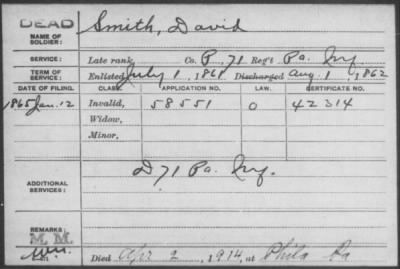 DEAD
NAME OF SOLDIER: Smith, David
SERVICE: Late rank, Co. P, 71 Reg't Pa. Inf.
TERM OF SERVICE: Enlisted July 1, 1861 Discharged Aug. 1, 1862
DATE OF FILING. CLASS. APPLICATION NO. LAW. CERTIFICATE NO.
1865 Jan. 12 Invalid, 58551 O 42314
Widow,
Minor,
ADDITIONAL SERVICES: D 71 Pa. Inf.
REMARKS:
M. M.
Died Apr 2, 1914, at Phila Pa